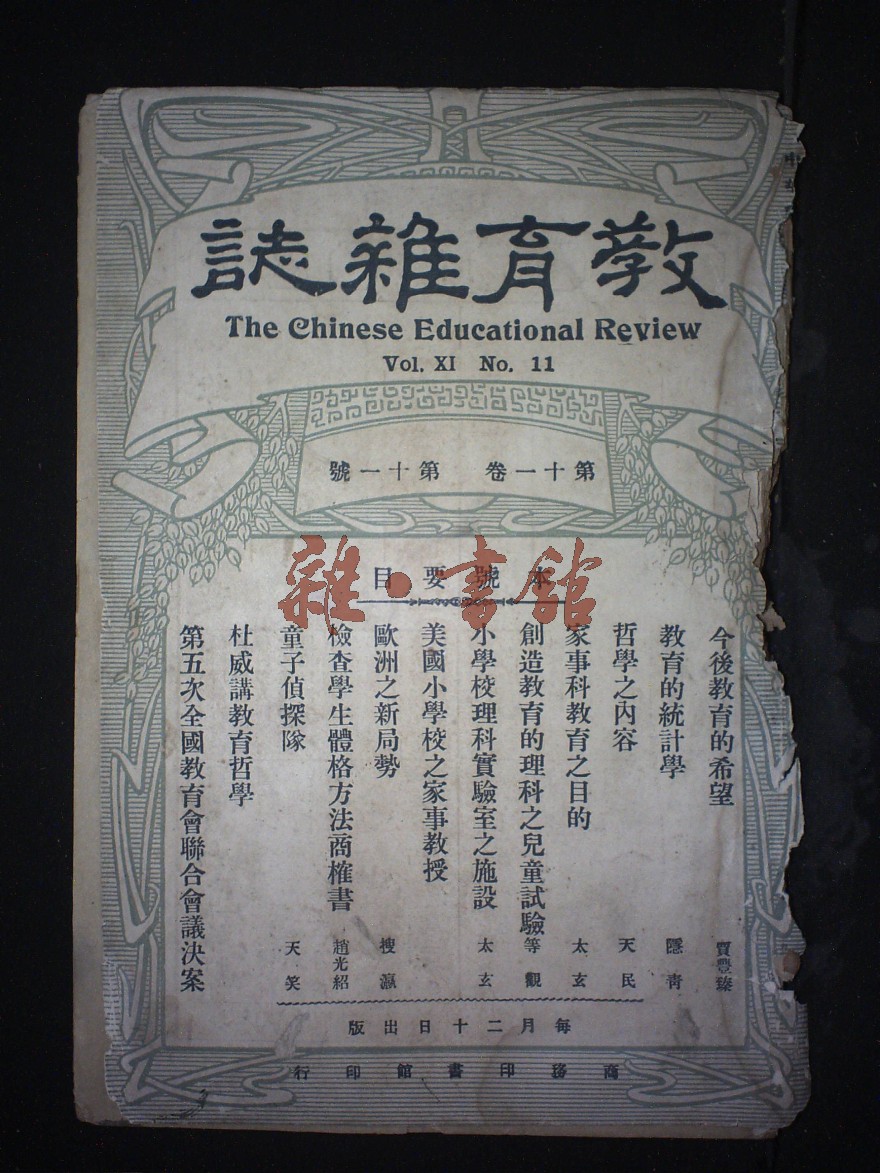 教育雜誌
The Chinese Educational Review
Vol. XI No. 11
第十一卷 第十一號
本號要目
雜·書館
今後教育的希望 賈豐臻
教育的統計學 隱青
哲學之內容 天民
家事科教育之目的 太玄
創造教育的理科之兒童試驗 等觀
小學校理科實驗室之施設 太玄
美國小學校之家事教授
歐洲之新局勢 搜瀛
檢查學生體格方法商榷書 趙光紹
童子偵探隊 天笑
杜威講教育哲學
第五次全國教育會聯合會議決案
每月二十日出版
商務印書館印行